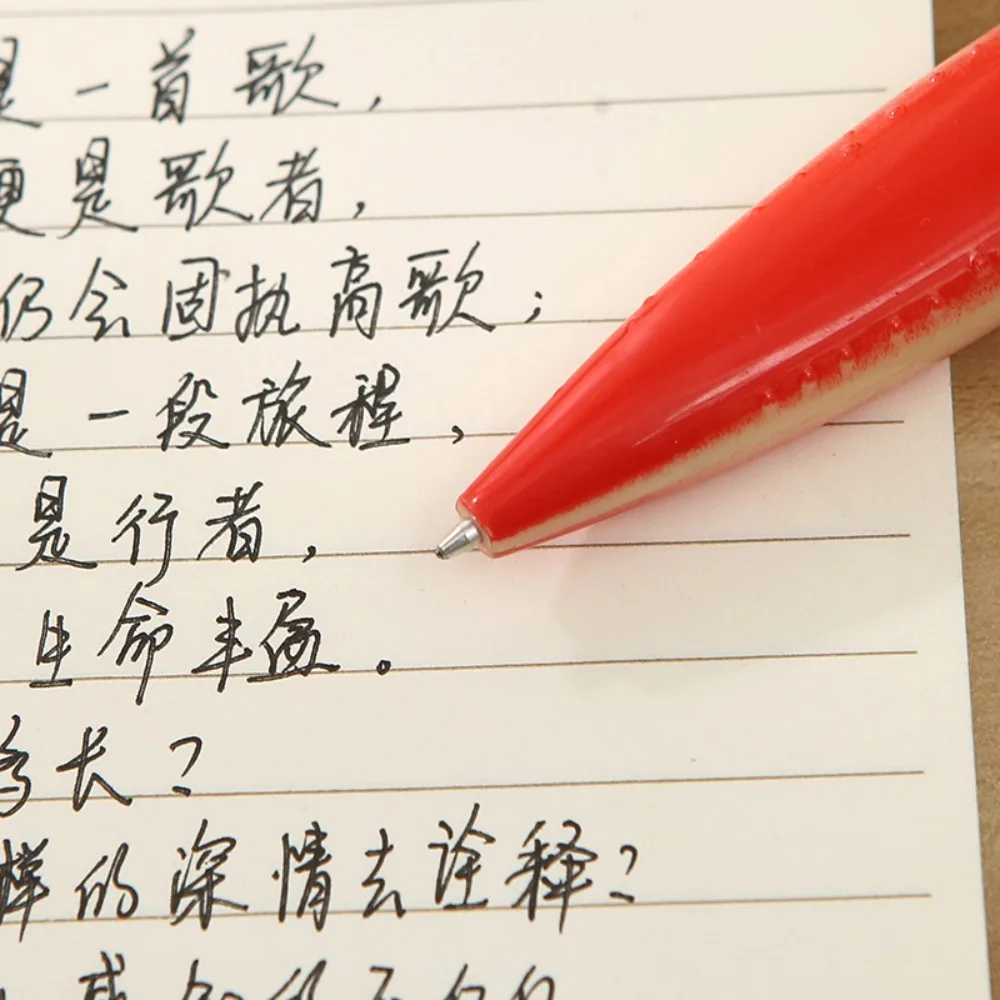 是一首歌，
便是歌者，
仍会固执高歌；
是一段旅程，
是行者，
生命丰盈。
多长？
样的深情去诠释？